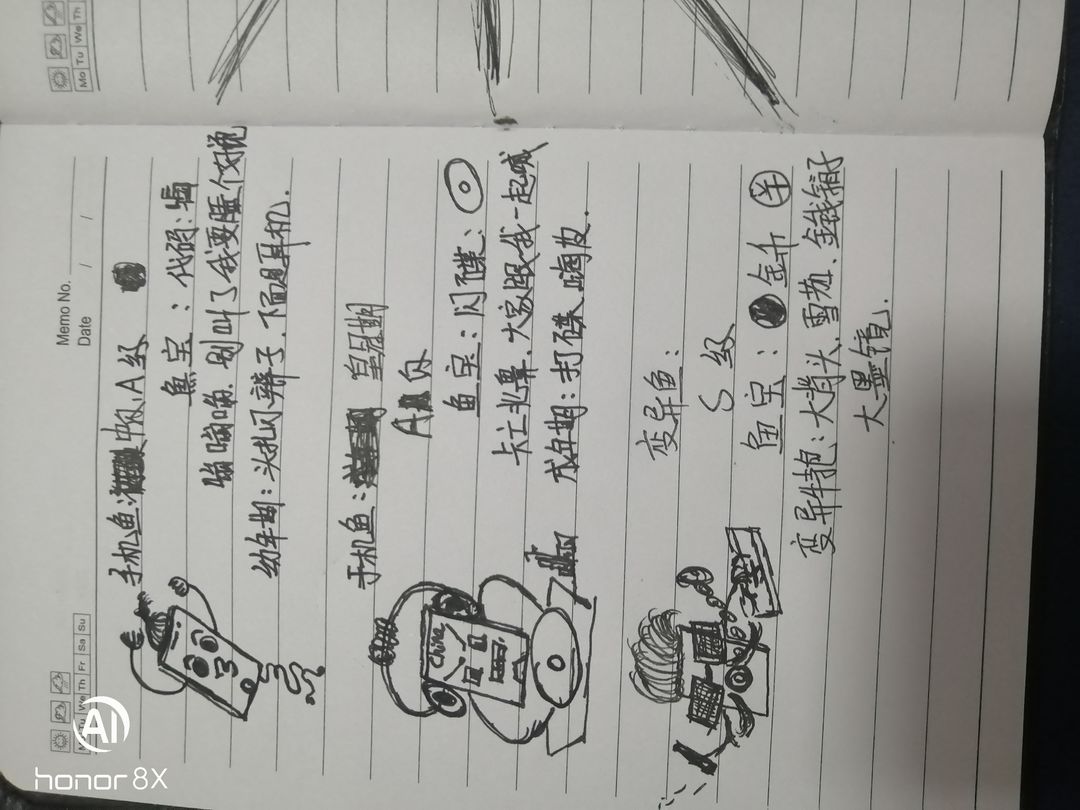 Memo No.
Date / /
Mo Tu We Th Fr Sa Su
手机鱼: 中级, A级
鱼宝: 代码:
嗡嗡嗡. 别叫了我要睡个好觉
幼年期: 头扎闪辫子. 下面是耳机.
手机鱼: 皇冠期
A级
鱼宝: 闪碟:
大家跟我一起喊
成年期: 打碟、嗨皮.
China
变异鱼:
S级
鱼宝: 金币
变异特抱: 大背头、雪茄、金钱箱子
大墨镜.
Mo Tu We Th
AI
honor 8X